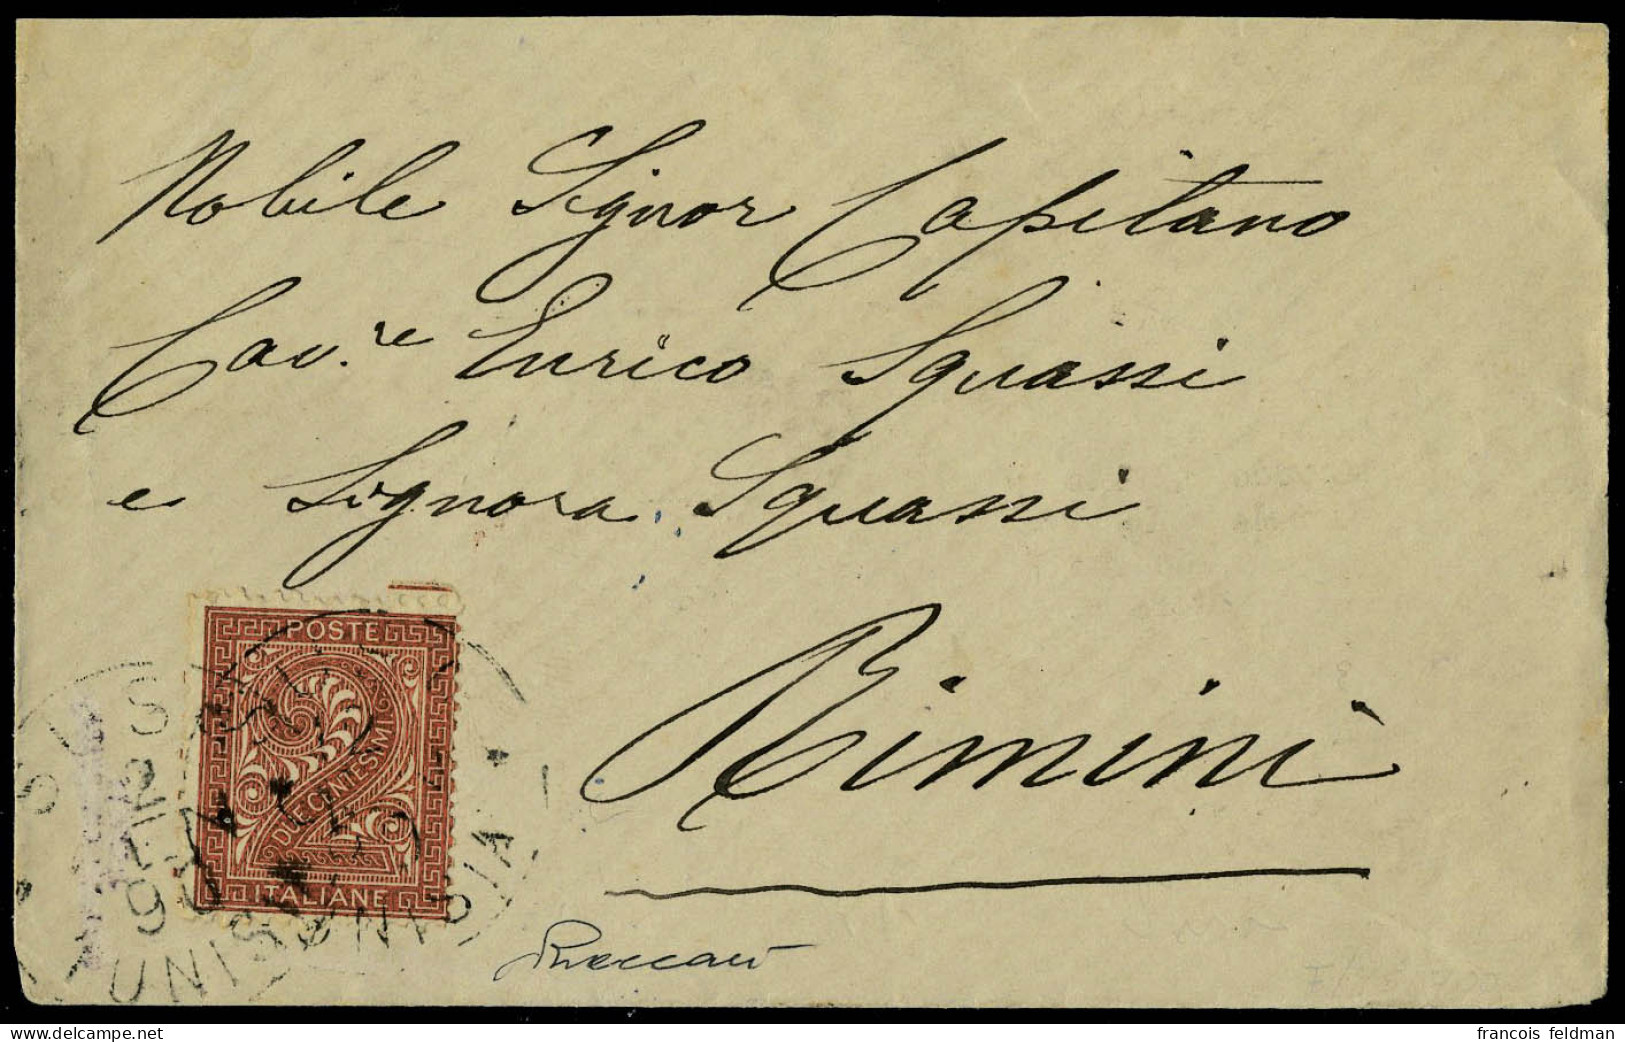 Nobile Signor Capitano
Cav.re Enrico Sguassi
e Signora Sguassi
Rimini
POSTE
DUE CENTESIMI
ITALIANE
delcampe.net
francois feldman